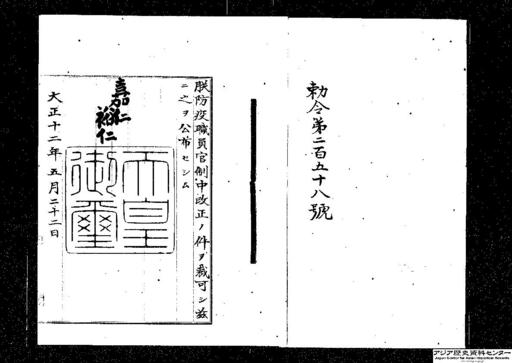 勅令第二百五十八號
朕防疫職員官制中改正ノ件ヲ裁可シ茲
ニ之ヲ公布セシム
嘉仁
裕仁
天皇
御璽
大正十二年五月二十二日
アジア歴史資料センター
Japan Center for Asian Historical Records